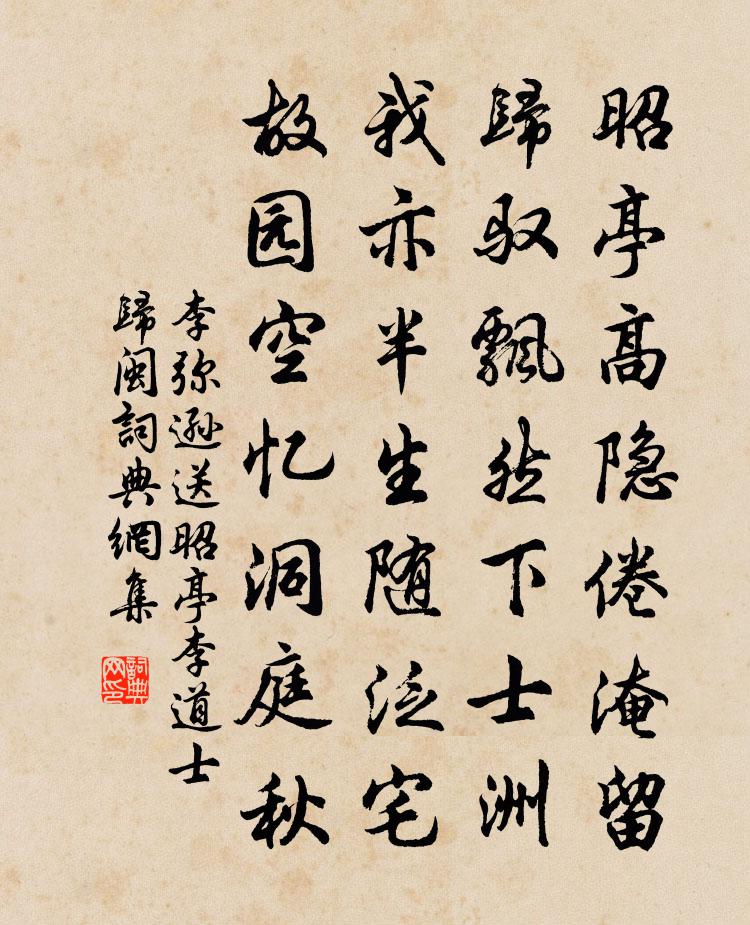 昭亭高隐倦淹留
歸驭飄然下士洲
我亦半生随泛宅
故园空忆洞庭秋
李弥遜送昭亭李道士
歸閩詞典網集
詞典
网印